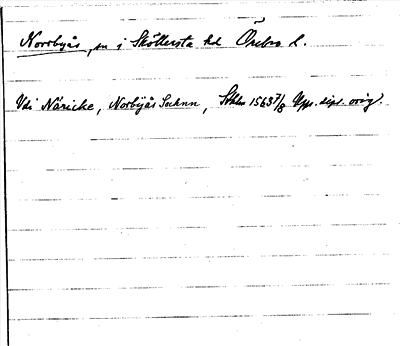 Norrbyås, sn i Sköllersta hd Örebro l.
Vdi Näricke, Norbijås Sochnn, Sthlm 1563 7/8 Upps. dipl. orig.